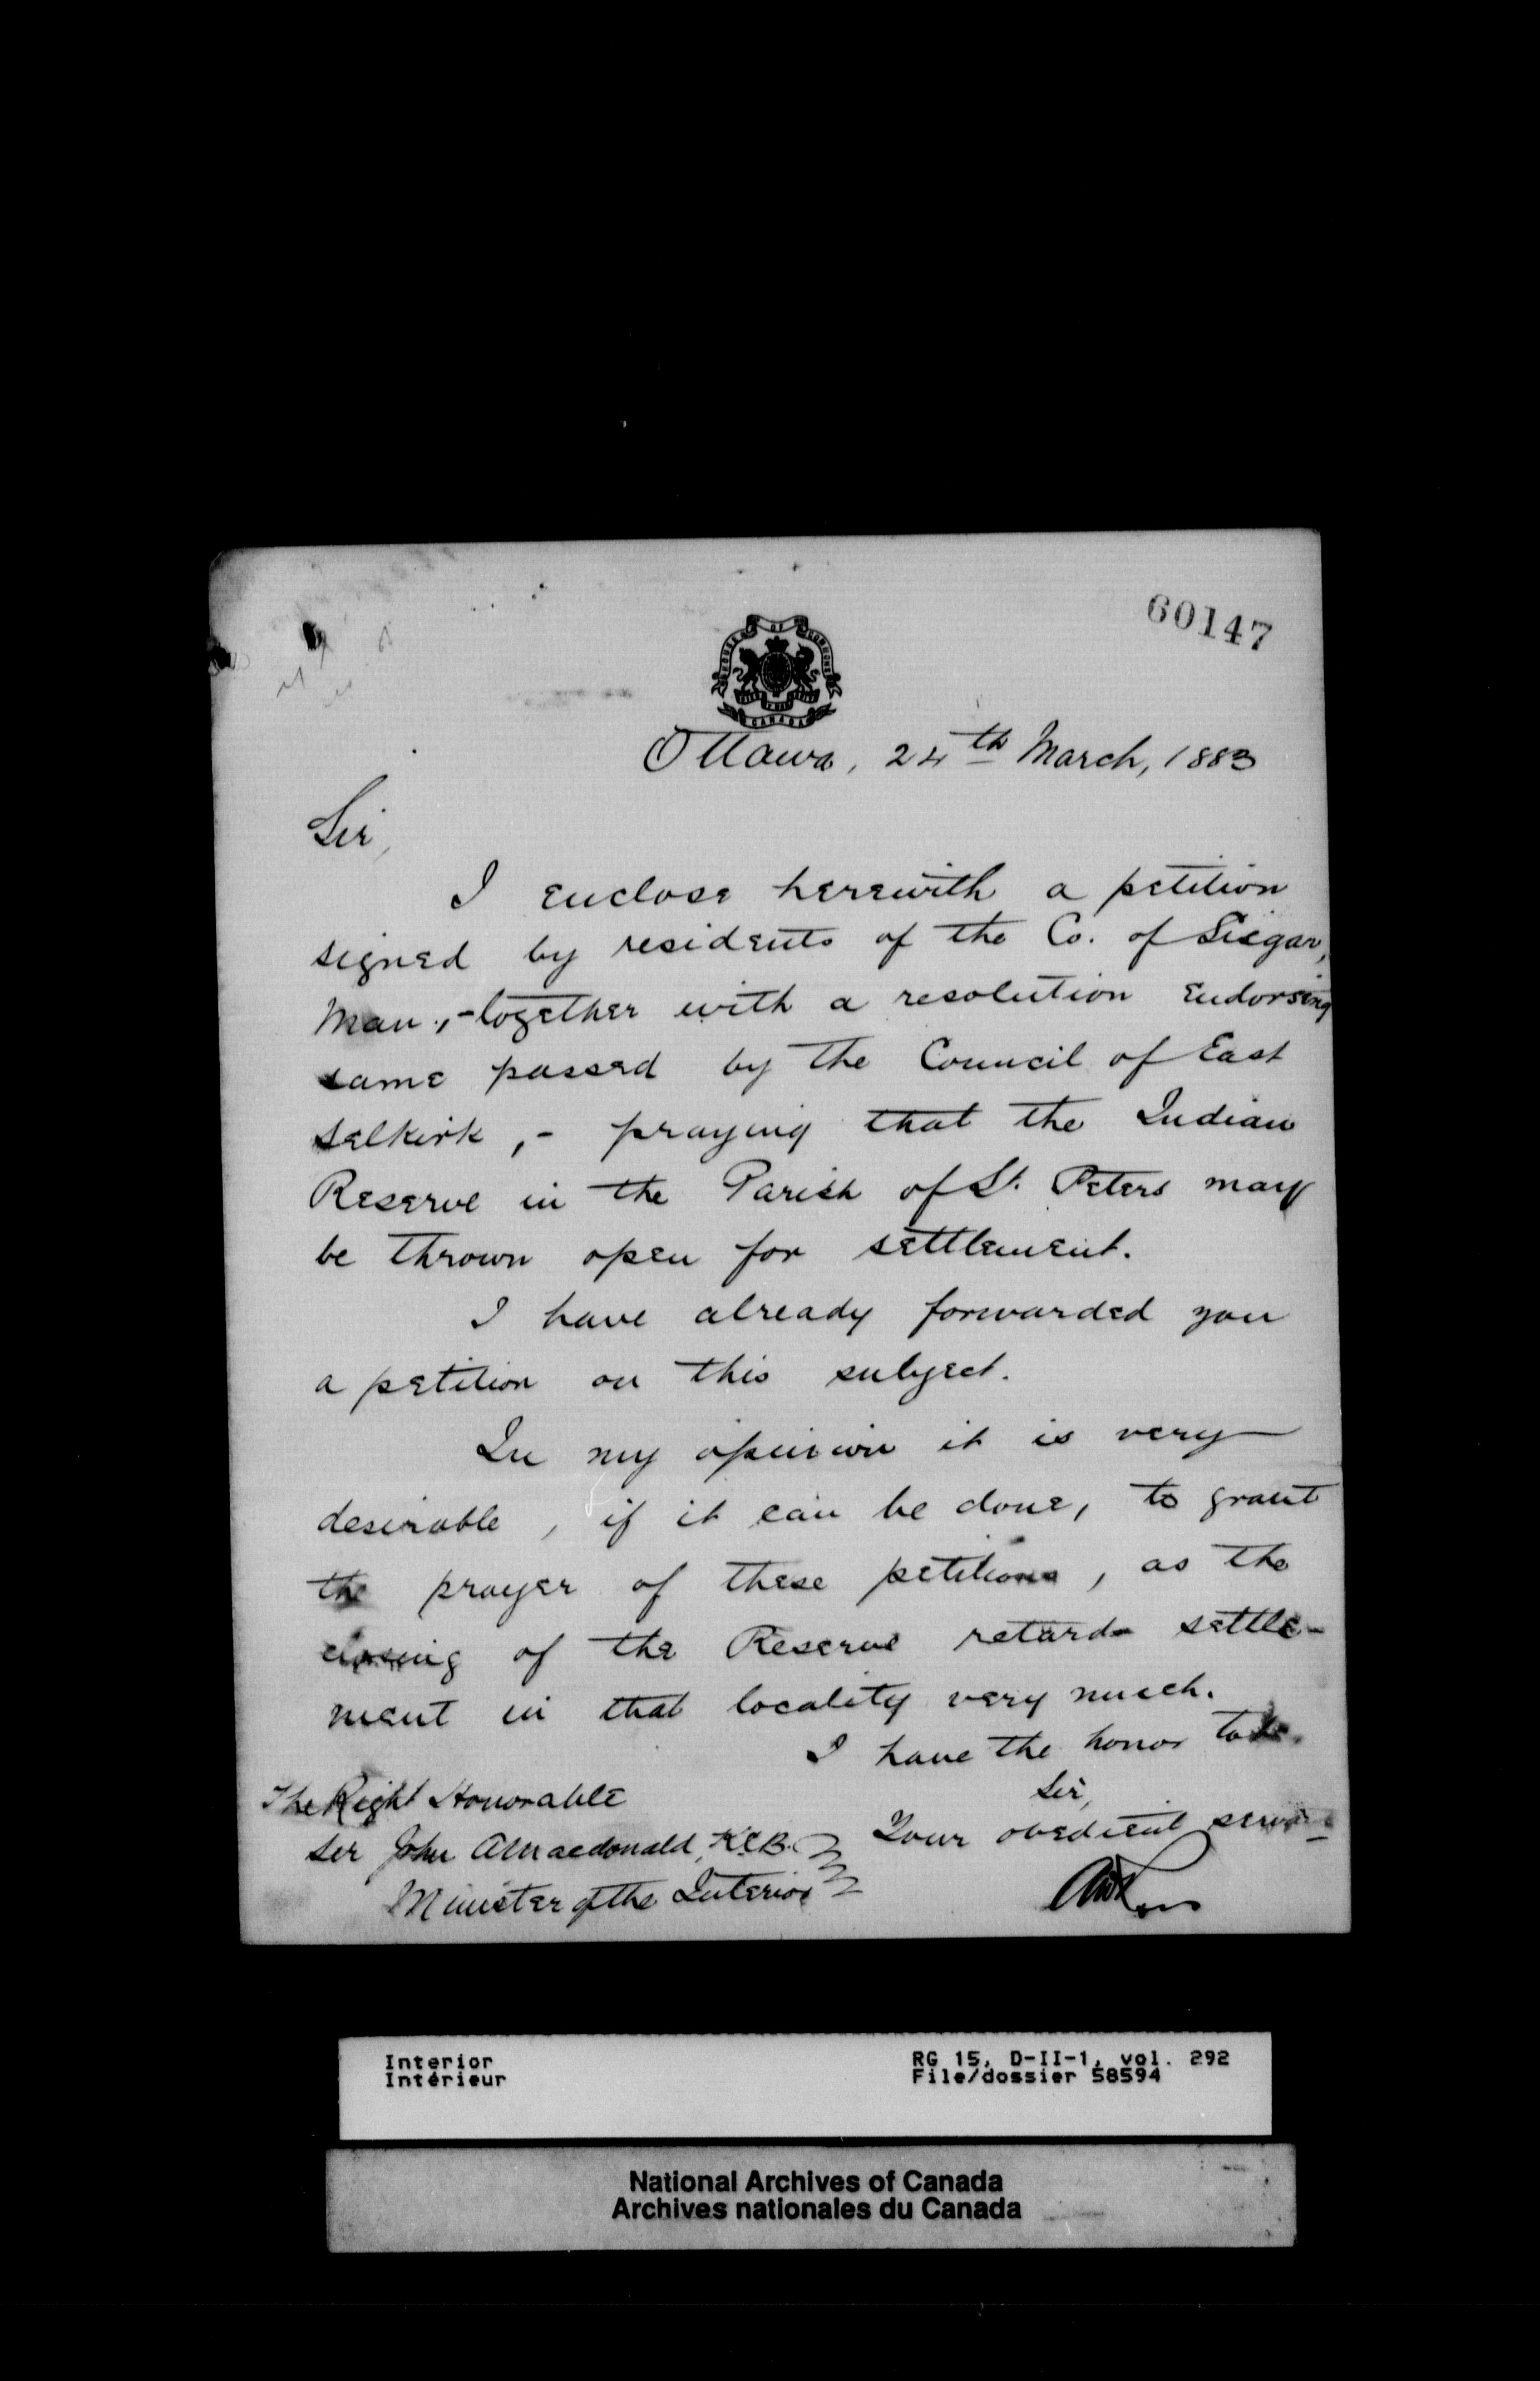 60147
HOUSE OF COMMONS
CANADA
Ottawa, 24th March, 1883
Sir,
I enclose herewith a petition
signed by residents of the Co. of Lisgar,
Man., - together with a resolution endorsing
same passed by the Council of East
Selkirk, - praying that the Indian
Reserve in the Parish of St. Peters may
be thrown open for settlement.
I have already forwarded you
a petition on this subject.
In my opinion it is very
desirable, if it can be done, to grant
the prayer of these petitions, as the
closing of the Reserve retards settle-
ment in that locality very much.
I have the honor to be.
Sir,
Your obedient servant
The Right Honorable
Sir John A Macdonald, K.C.B.
Minister of the Interior
Interior
Intérieur
RG 15, D-II-1, vol. 292
File/dossier 58594
National Archives of Canada
Archives nationales du Canada